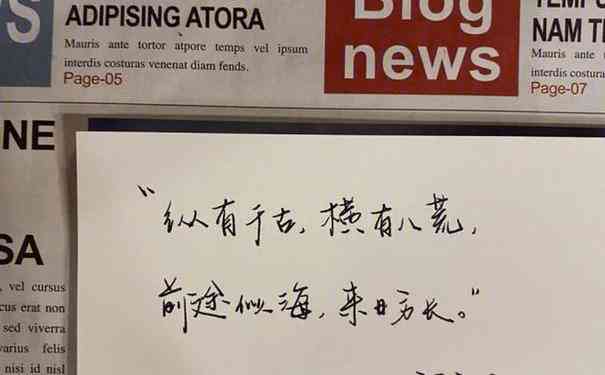 S
ADIPISING ATORA
Mauris ante tortor atpore temps vel ipsum
interdis costuras venenat diam fends.
Page-05
Blog
news
NAM
Mauris ante
interdis
Page-07
NE
SA
, vel cursus
erat non
sed viverra
varius felis
nisi id nisl
“纵有千古，横有八荒，
前途似海，来日方长。”